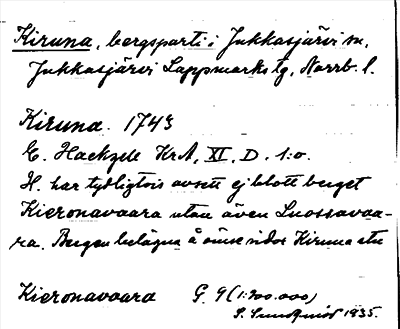 Kiruna, bergsparti i Jukkasjärvi sn,
Jukkasjärvi Lappmarks tg, Norrb. l.
Kiruna. 1743
E. Hackzell KrA, XI, D. 1:o.
H. har tydligtvis avsett ej blott berget
Kieronavaara utan även Luossavaa-
ra. Bergen belägna å ömse sidor Kiruna stn
Kieronavaara G. 9 (1:200.000)
S. Sundqvist 1935.